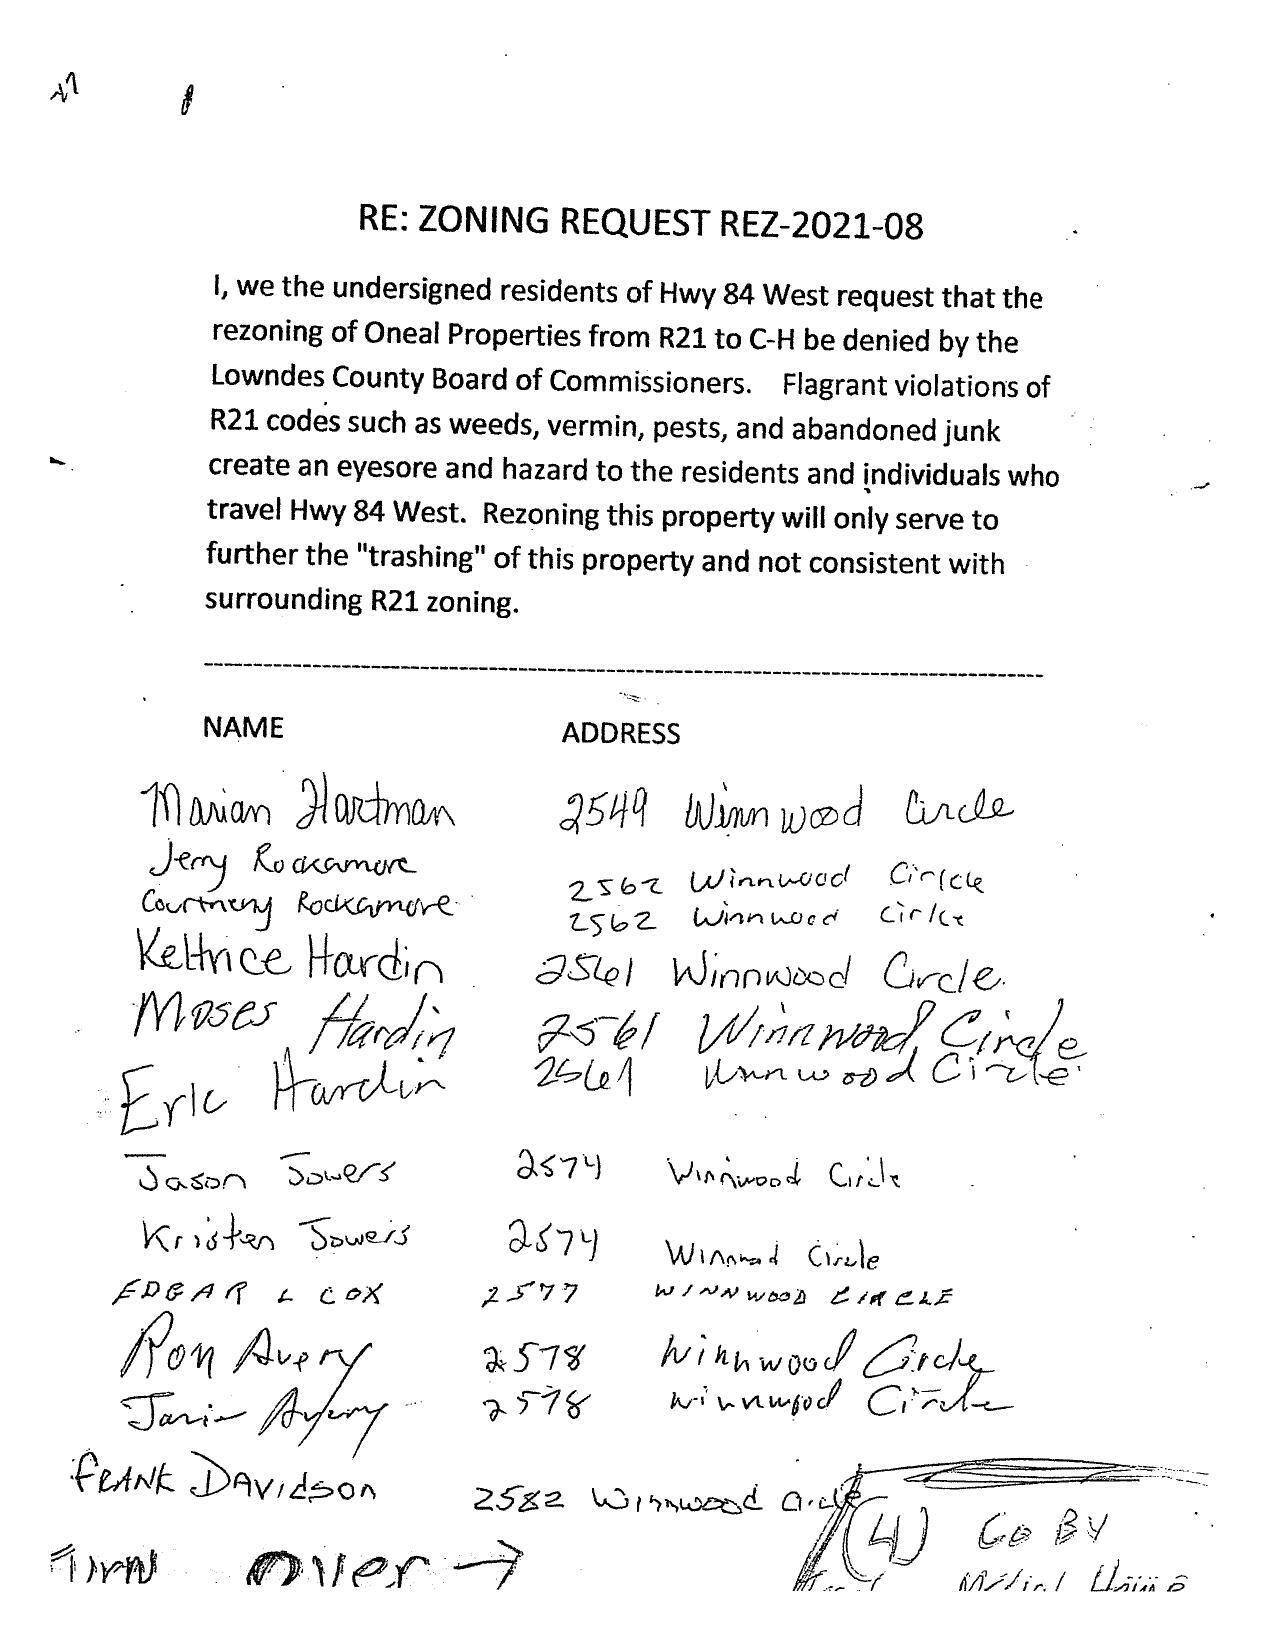 RE: ZONING REQUEST REZ-2021-08
I, we the undersigned residents of Hwy 84 West request that the
rezoning of Oneal Properties from R21 to C-H be denied by the
Lowndes County Board of Commissioners. Flagrant violations of
R21 codes such as weeds, vermin, pests, and abandoned junk
create an eyesore and hazard to the residents and individuals who
travel Hwy 84 West. Rezoning this property will only serve to
further the "trashing" of this property and not consistent with
surrounding R21 zoning.
NAME ADDRESS
Marian Hartman 2549 Winnwood Circle
Jerry Rockamore 2562 Winnwood Circle
Courtney Rockamore 2562 Winnwood Circle
Kettrice Hardin 2561 Winnwood Circle.
Moses Hardin 2561 Winnwood Circle
Eric Hardin 2561 Winnwood Circle
Jason Sowers 2574 Winnwood Circle
Kristen Sowers 2574 Winnwood Circle
EDGAR L COX 2577 WINNWOOD CIRCLE
Ron Avery 2578 Winnwood Circle
Avery 2578 Winnwood Circle
FRANK DAVIDSON 2582 Winnwood Circle
Turn over →
(4) GO BY